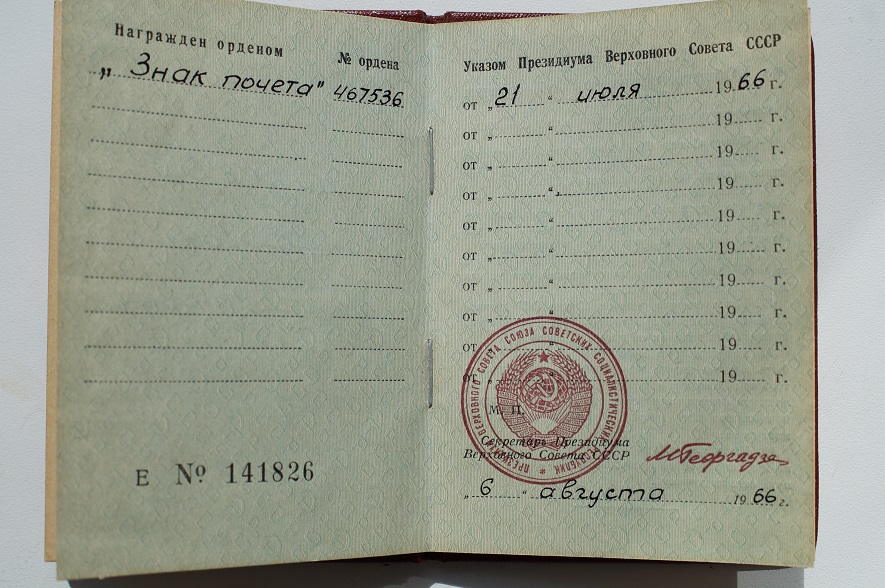 Награжден орденом
№ ордена
„Знак почета"
467536
Е № 141826
Указом Президиума Верховного Совета СССР
от „21“ июля 1966 г.
от „ “ 19 г.
от „ “ 19 г.
от „ “ 19 г.
от „ “ 19 г.
от „ “ 19 г.
от „ “ 19 г.
от „ “ 19 г.
от „ “ 19 г.
от „ “ 19 г.
ПРЕЗИДИУМ ВЕРХОВНОГО СОВЕТА СОЮЗА СОВЕТСКИХ СОЦИАЛИСТИЧЕСКИХ РЕСПУБЛИК
М. П.
Секретарь Президиума
Верховного Совета СССР
МГеоргадзе
„6“ августа 1966 г.